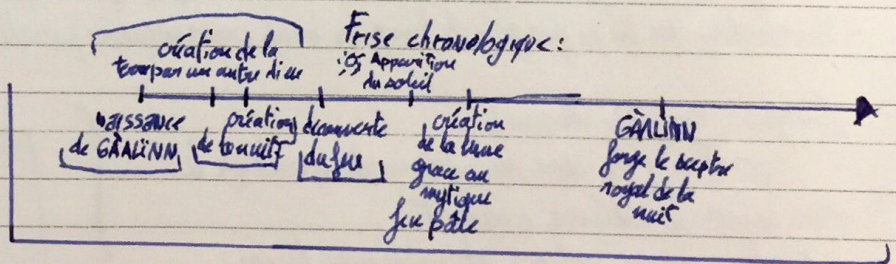 Frise chronologique :
création de la
par un autre dieu
Apparition
du soleil
naissance
de GÀALÏNN
création
de la nuit
découverte
du feu
création
de la lune
grace au
mytique
feu pâle
GÀALÏNN
forge le sceptre
royal de la
nuit